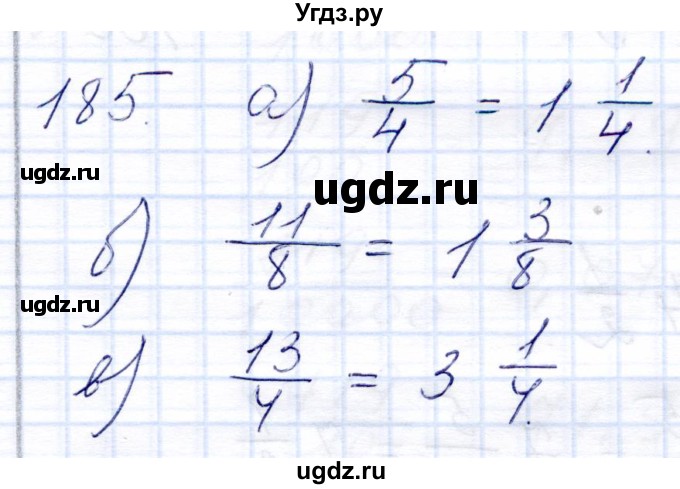 Угдз.ру
185. а) 5/4 = 1 1/4.
ugdz.ru
ugdz.ru
б) 11/8 = 1 3/8
ugdz.ru
в) 13/4 = 3 1/4.
ugdz.ru